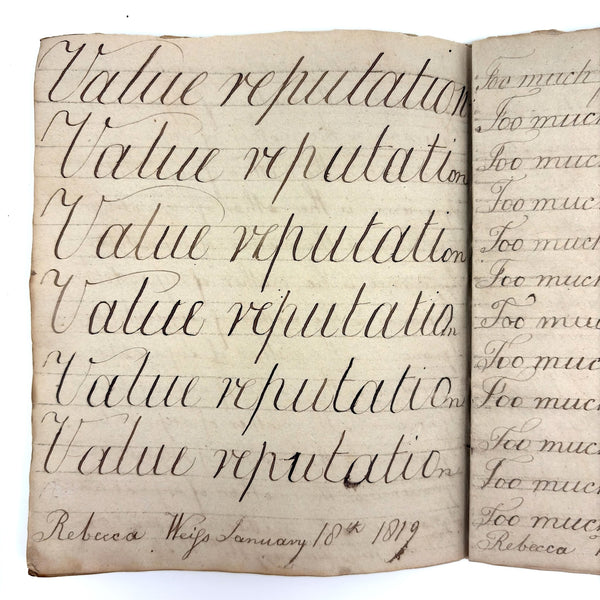 Value reputation
Value reputation
Value reputation
Value reputation
Value reputation
Value reputation
Rebecca Weiſs January 18th 1819
Too much
Too much
Too much
Too much
Too much
Too much
Too much
Too much
Too much
Too much
Too much
Too much
Rebecca